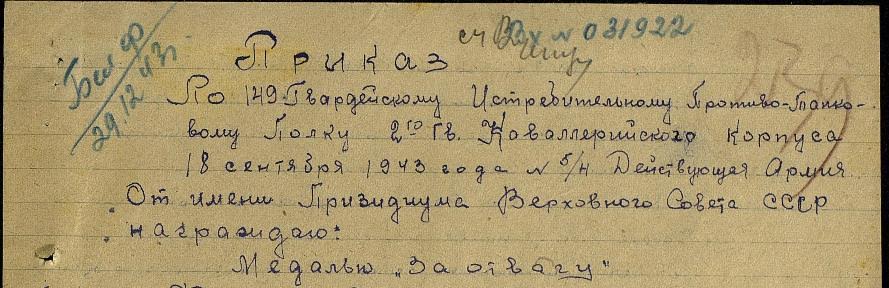 Вх № 031922
29.12.43г.
Приказ
По 149 Гвардейскому Истребительному Противо-Танко-
вому Полку 2го Гв. Каваллерийского корпуса
18 сентября 1943 года № 5/Н Действующая Армия
От имени Призидиума Верховного Совета СССР
награждаю:
Медалью „За отвагу"